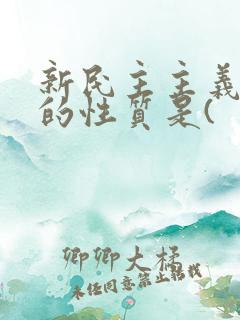 新民主主義
的性質是(
卿卿大橘
未经同意禁止搬找